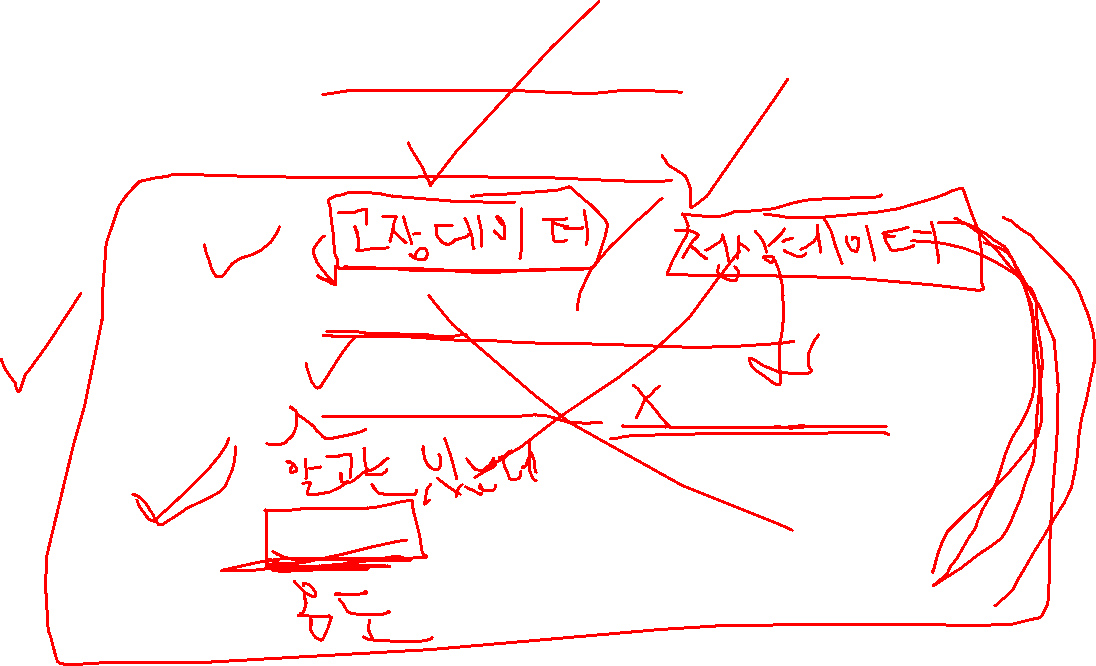 고장데이터 정상데이터
X
알고는 있는데
용도